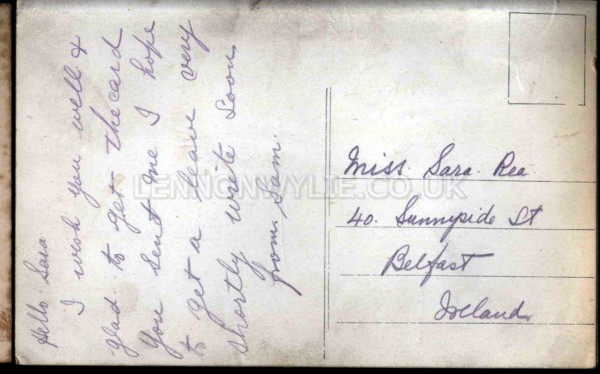 Hello Sara
I wish you well &
glad to get the card
you sent me I hope
to get a leave very
shortly write Soon
from Sam.
Miss. Sara. Rea
40. Sunnyside St
Belfast
Ireland
LENNONWYLIE.CO.UK